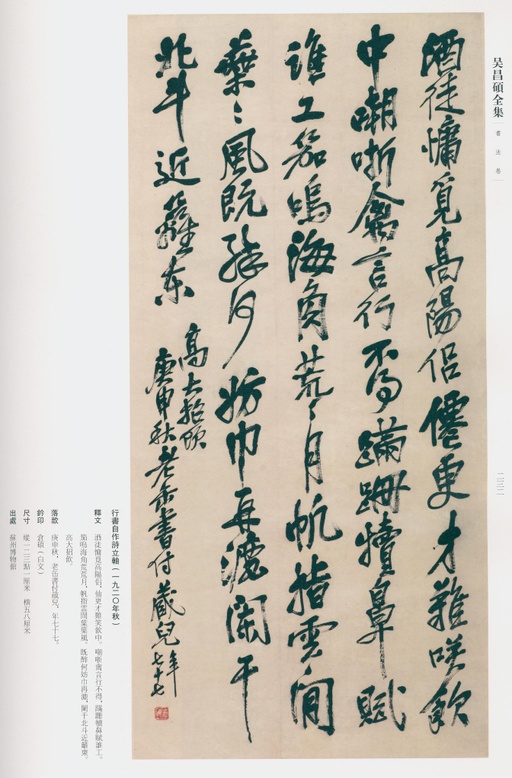 吴昌碩全集
書法卷
酒徒慵覓高陽侣僊更才難咲飲
中嘲哳禽言行不得蹣跚犢鼻賦
誰工笳鳴海角荒〻月帆指雲間
葉〻風既醉何妨巾再漉闌干
北斗近籬东
高大招飲
庚申秋老缶書付藏兒年七十七
行書自作詩立軸(一九二〇年秋)
釋文 酒徒慵覓高陽侣,仙更才難笑飲中。嘲哳禽言行不得,蹣跚犢鼻賦誰工。
笳鳴海角荒荒月,帆指雲間葉葉風。既醉何妨巾再漉,闌干北斗近籬東。
高大招飲。
落款 庚申秋,老缶書付藏兒,年七十七。
鈐印 倉碩(白文)
尺寸 縱一二三點一厘米 橫五八厘米
出處 蘇州博物館